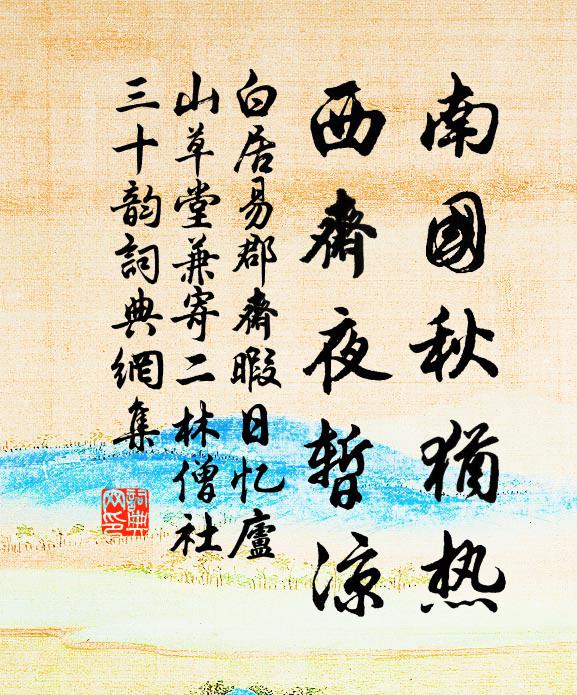 南國秋犹热
西齋夜暂涼
白居易郡齋暇日忆廬
山草堂兼寄二林僧社
三十韵詞典網集